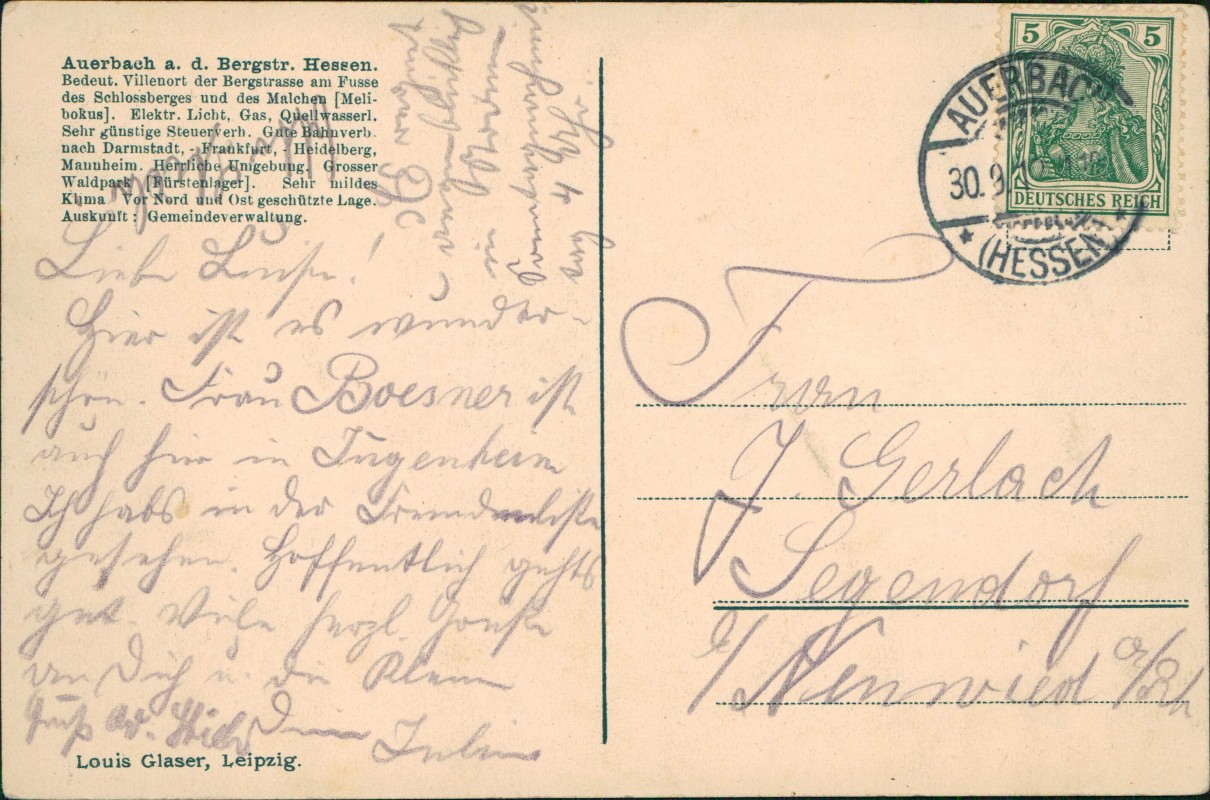 Auerbach a. d. Bergstr. Hessen.
Bedeut. Villenort der Bergstrasse am Fusse
des Schlossberges und des Malchen [Meli-
bokus]. Elektr. Licht, Gas, Quellwasserl.
Sehr günstige Steuerverh. Gute Bahnverb.
nach Darmstadt, - Frankfurt, - Heidelberg,
Mannheim. Herrliche Umgebung. Grosser
Waldpark [Fürstenlager]. Sehr mildes
Klima Vor Nord und Ost geschützte Lage.
Auskunft: Gemeindeverwaltung.
Liebe Luise!
Hier ist es wunder-
schön. Frau Boesner ist
auch hier in Jugenheim
Ich habs in der Fremdenliste
gesehen. Hoffentlich gehts
gut. Viele herzl. Grüße
an Dich u. die Kleine
Gruß
Dein
augenblicklich
in
4
Louis Glaser, Leipzig.
5 5
DEUTSCHES REICH
AUERBACH
30.9.
(HESSEN)
Frau
J. Gerlach
Segendorf
b/ Neuwied a/Rh